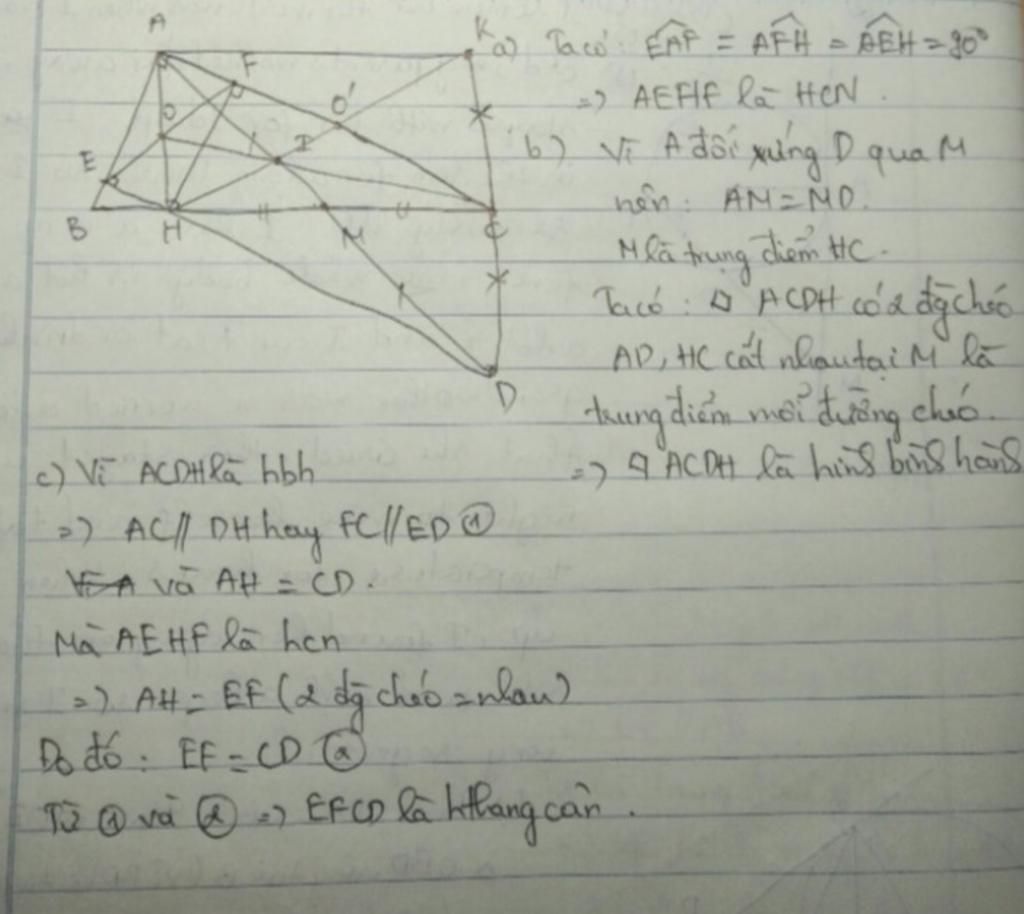 A
K
F
O'
O
I
E
B
H
M
C
D
a) Ta có: EAF = AFH = AEH = 90°
=> AEHF là HCN.
b) Vì A đối xứng D qua M
nên: AM = MD.
M là trung điểm HC.
Ta có: ACDH có 2 đg chéo
AD, HC cắt nhau tại M là
trung điểm mỗi đường chéo.
=> ACDH là hình bình hành
c) Vì ACDH là hbh
=> AC // DH hay FC // ED ①
và AH = CD.
Mà AEHF là hcn
=> AH = EF (2 đg chéo = nhau)
Do đó: EF = CD ②
Từ ① và ② => EFCD là hthang cân.